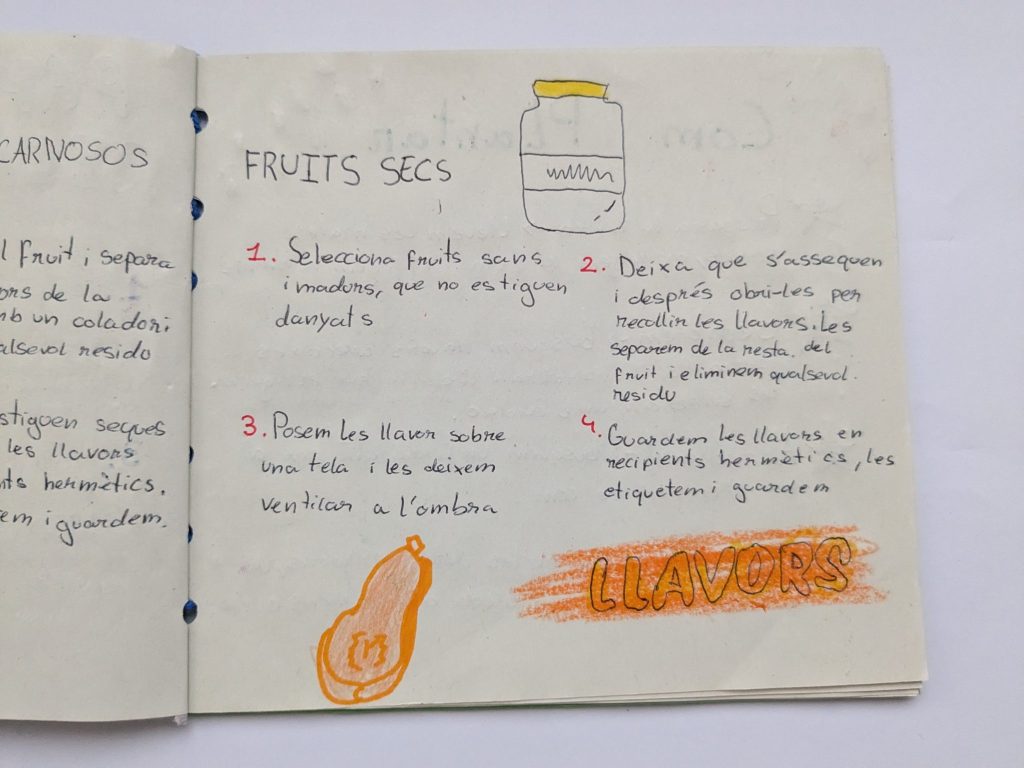 CARNOSOS
l fruit i separa
ors de la
mb un colador i
alsevol residu
stiguen seques
les llavors
nts hermètics,
em i guardem.
FRUITS SECS
1. Selecciona fruits sans
i madurs, que no estiguen
danyats
2. Deixa que s'assequen
i després obri-les per
recollir les llavors. Les
separem de la resta del
fruit i eliminem qualsevol
residu
3. Posem les llavor sobre
una tela i les deixem
ventilar a l'ombra
4. Guardem les llavors en
recipients hermètics, les
etiquetem i guardem
LLAVORS
Com Plantar